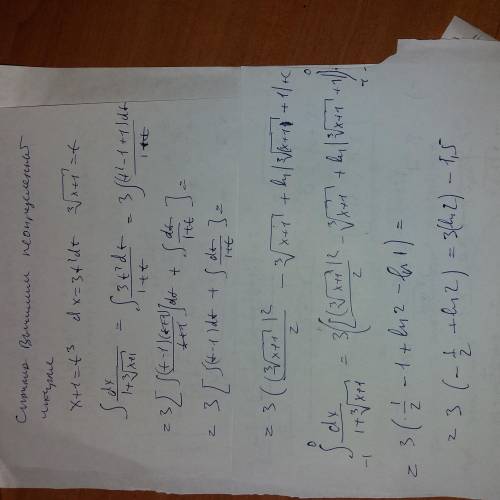 Сначала вычислим неопределенный
интеграл
x+1=t³ dx=3t²dt ∛(x+1)=t
∫ dx/(1+∛(x+1)) = ∫ 3t²dt/(1+t) = 3∫ (t²-1+1)dt/(1+t)
= 3[∫ (t-1)(t+1)/(t+1) dt + ∫ dt/(1+t)] =
= 3[∫(t-1)dt + ∫ dt/(1+t)] =
= 3((∛(x+1))²/2 - ∛(x+1) + ln|∛(x+1)+1|)+c
∫₋₁⁰ dx/(1+∛(x+1)) = 3[(∛(x+1))²/2 - ∛(x+1) + ln|∛(x+1)+1|]|₋₁⁰
= 3(1/2 - 1 + ln2 - ln1) =
= 3(-1/2 + ln2) = 3(ln2) - 1,5